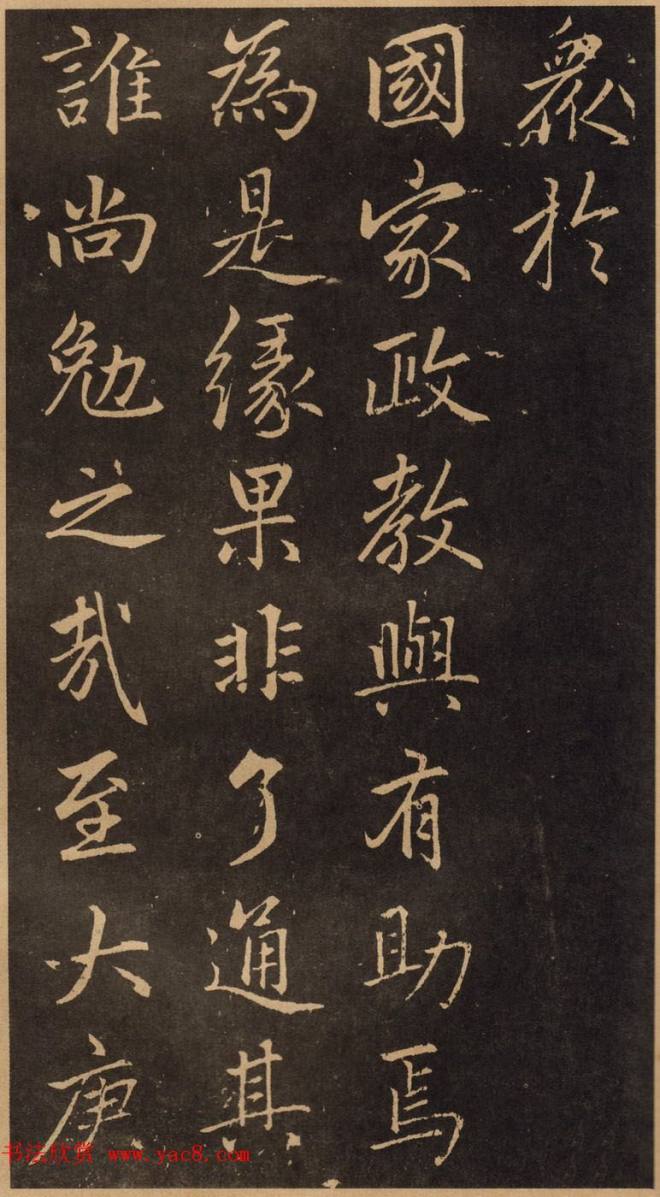 眾於
國家政教與有助焉
為是緣果非了通其
誰尚勉之哉至大庚
书法欣赏 www.yac8.com